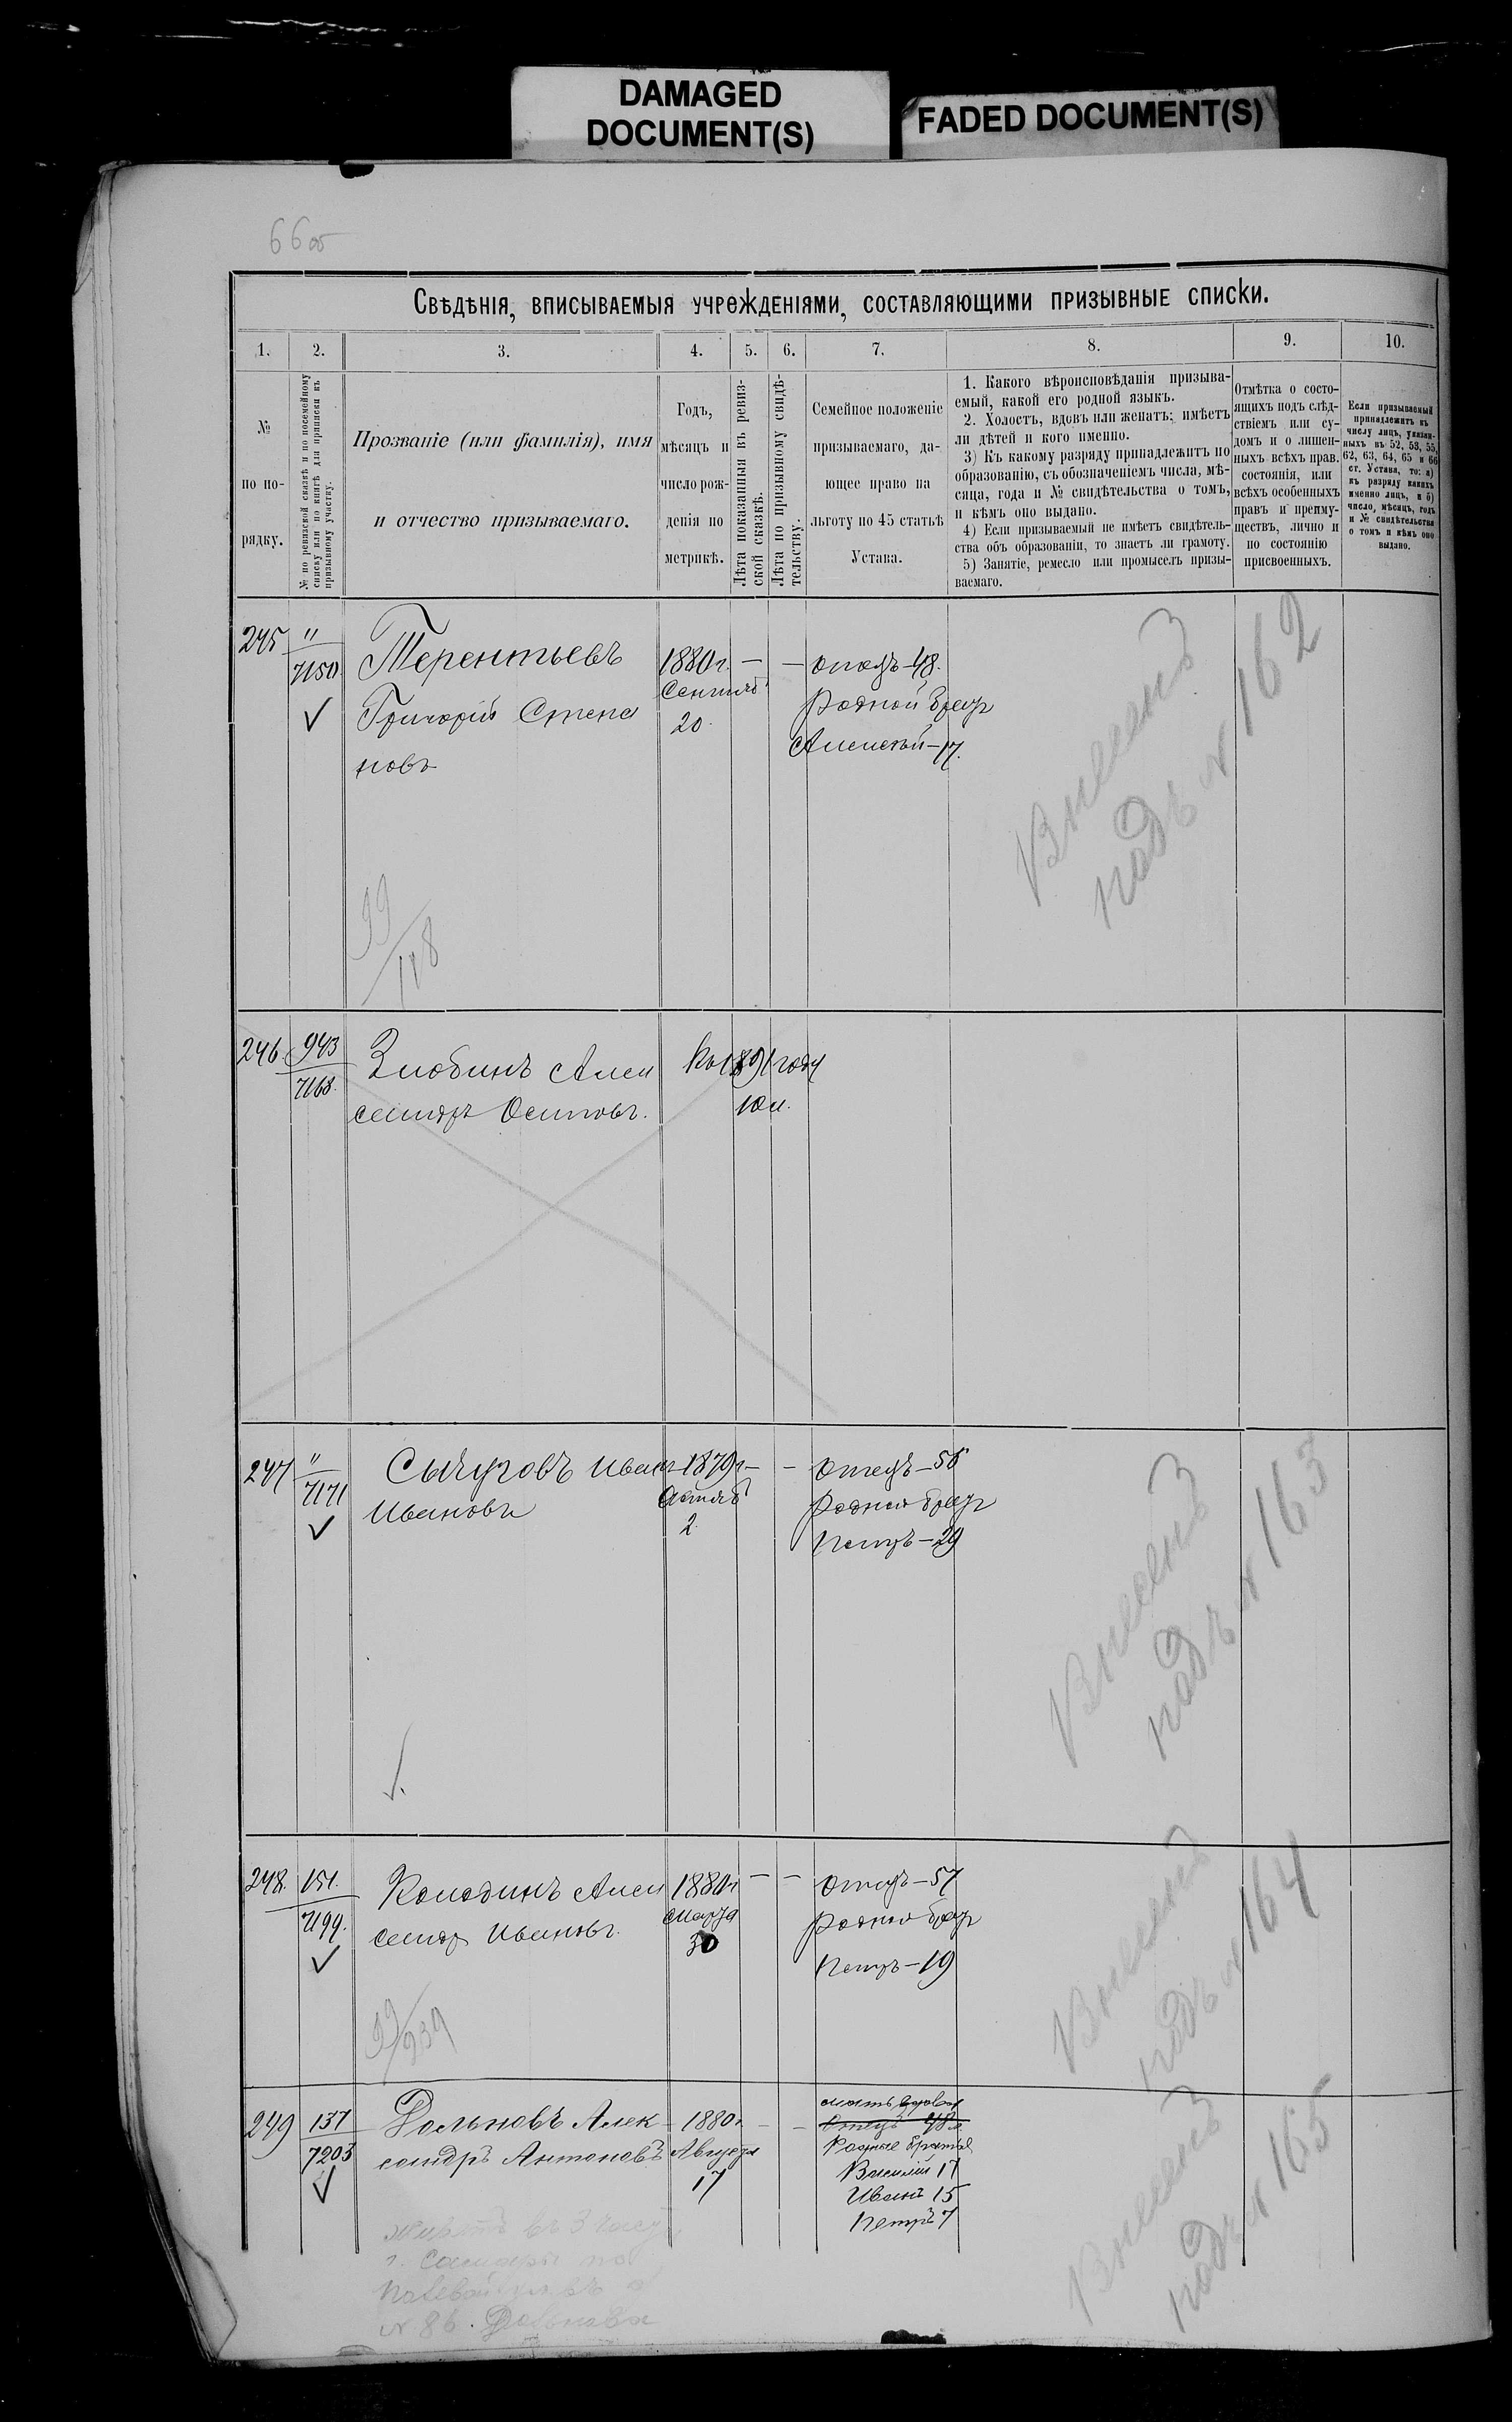 DAMAGED
DOCUMENT(S)
FADED DOCUMENT(S)
66об
Свѣдѣнія, вписываемыя учрежденіями, составляющими призывные списки.
1. 2. 3. 4. 5. 6. 7. 8. 9. 10.
№
по по-
рядку.
№ по ревизской сказкѣ и по посемейному
списку или по книгѣ для приписки къ
призывному участку.
Прозваніе (или фамилія), имя
и отчество призываемаго.
Годъ,
мѣсяцъ и
число рож-
денія по
метрикѣ.
Лѣта показанныя въ ревиз-
ской сказкѣ.
Лѣта по призывному свидѣ-
тельству.
Семейное положеніе
призываемаго, да-
ющее право на
льготу по 45 статьѣ
Устава.
1. Какого вѣроисповѣданія призыва-
емый, какой его родной языкъ.
2. Холостъ, вдовъ или женатъ; имѣетъ
ли дѣтей и кого именно.
3) Къ какому разряду принадлежитъ по
образованію, съ обозначеніемъ числа, мѣ-
сяца, года и № свидѣтельства о томъ,
и кѣмъ оно выдано.
4) Если призываемый не имѣетъ свидѣтель-
ства объ образованіи, то знаетъ ли грамоту.
5) Занятіе, ремесло или промыселъ призы-
ваемаго.
Отмѣтка о состо-
ящихъ подъ слѣд-
ствіемъ или су-
домъ и о лишен-
ныхъ всѣхъ прав.
состоянія, или
всѣхъ особенныхъ
правъ и преиму-
ществъ, лично и
по состоянію
присвоенныхъ.
Если призываемый
принадлежитъ къ
числу лицъ, указан-
ныхъ въ 52, 53, 55,
62, 63, 64, 65 и 66
ст. Устава, то: а)
къ разряду какихъ
именно лицъ, и б)
число, мѣсяцъ, годъ
и № свидѣтельства
о томъ и кѣмъ оно
выдано.
245 " Терентьевъ 1880г. — — отецъ—48.
7150 Григорій Степа Сентяб родной братъ
новъ 20. Алексѣй—17.
Внесенъ
подъ № 162
99/118
246. 943 Злобинъ Алек
7168. сандръ Осиповъ.
247 " Сычуговъ Иванъ 1879г — — отецъ—56
7171 Ивановъ Октяб родной братъ
2. Петръ—29
Внесенъ
подъ № 163
248. 151. Колодинъ Алек 1880г — — отецъ—57
7199. сандръ Ивановъ. Марта родной братъ
30 Петръ—19
Внесенъ
подъ № 164
99/239
249 137 Дольновъ Алек 1880г. — — мать вдова
7203 сандръ Антоновъ Августа отецъ 48
17 Родные братья
Василій 17
Иванъ 15
Петръ 7
Внесенъ
подъ № 165
въ 3 части
г. Самары по
№ 86.